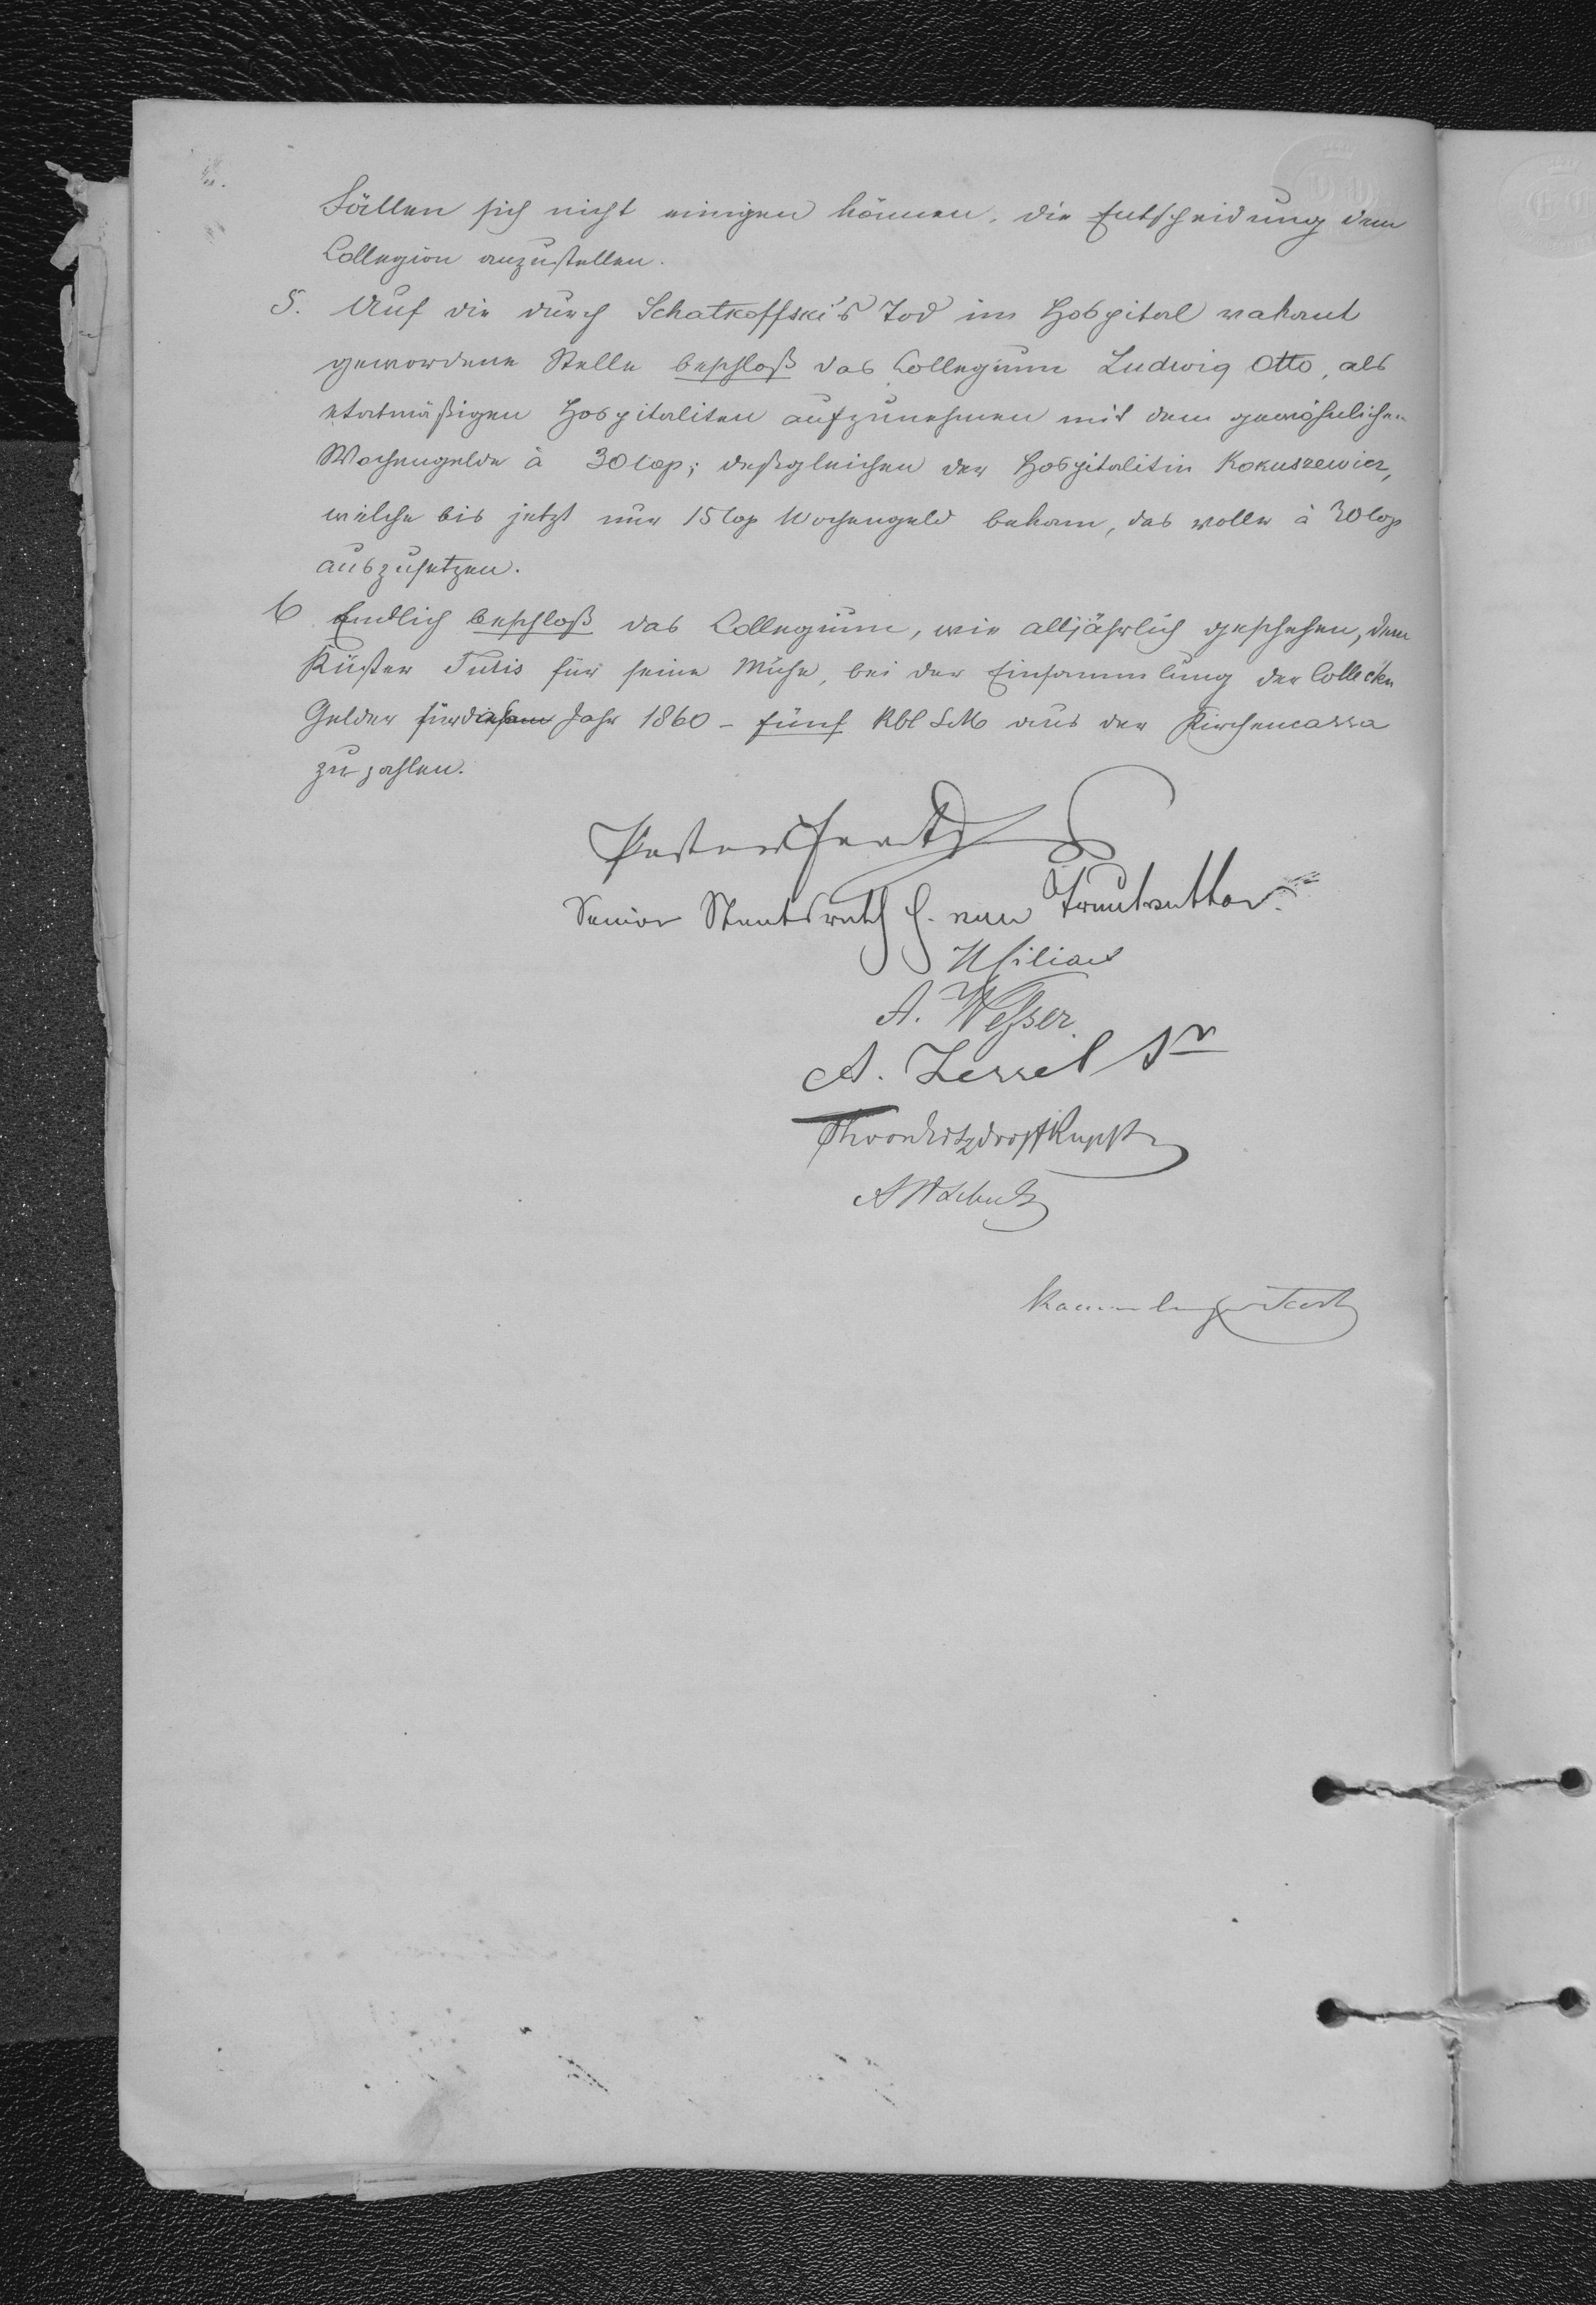 Fällen sich nicht einigen können, die Entscheidung dem
Collegion anzustellen.
5. Auf die durch Schatkoffski's Tod im Hospital vakant
gewordene Stelle beschloß das Collegium Ludwig Otto, als
etatmäßigen Hospitaliten aufzunehmen mit dem gewöhnlichen
Wochengelde à 30 Cop; desgleichen der Hospitalitin Kokuszewicz,
welche bis jetzt nur 15 Cop Wochengeld bekam, das volle à 30 Cop
auszusetzen.
6 Endlich beschloß das Collegium, wie alljährlich geschehen, dem
Küster Turis für seine Mühe, bei der Einsammlung der Collecten
Gelder für diesem Jahr 1860 - fünf Rbl SM aus der Kirchencassa
zu zahlen.
Pastor
Senior Staatsrath E. von Trautvetter
A. Wesser
A. Zessel Sr
A W Schultz